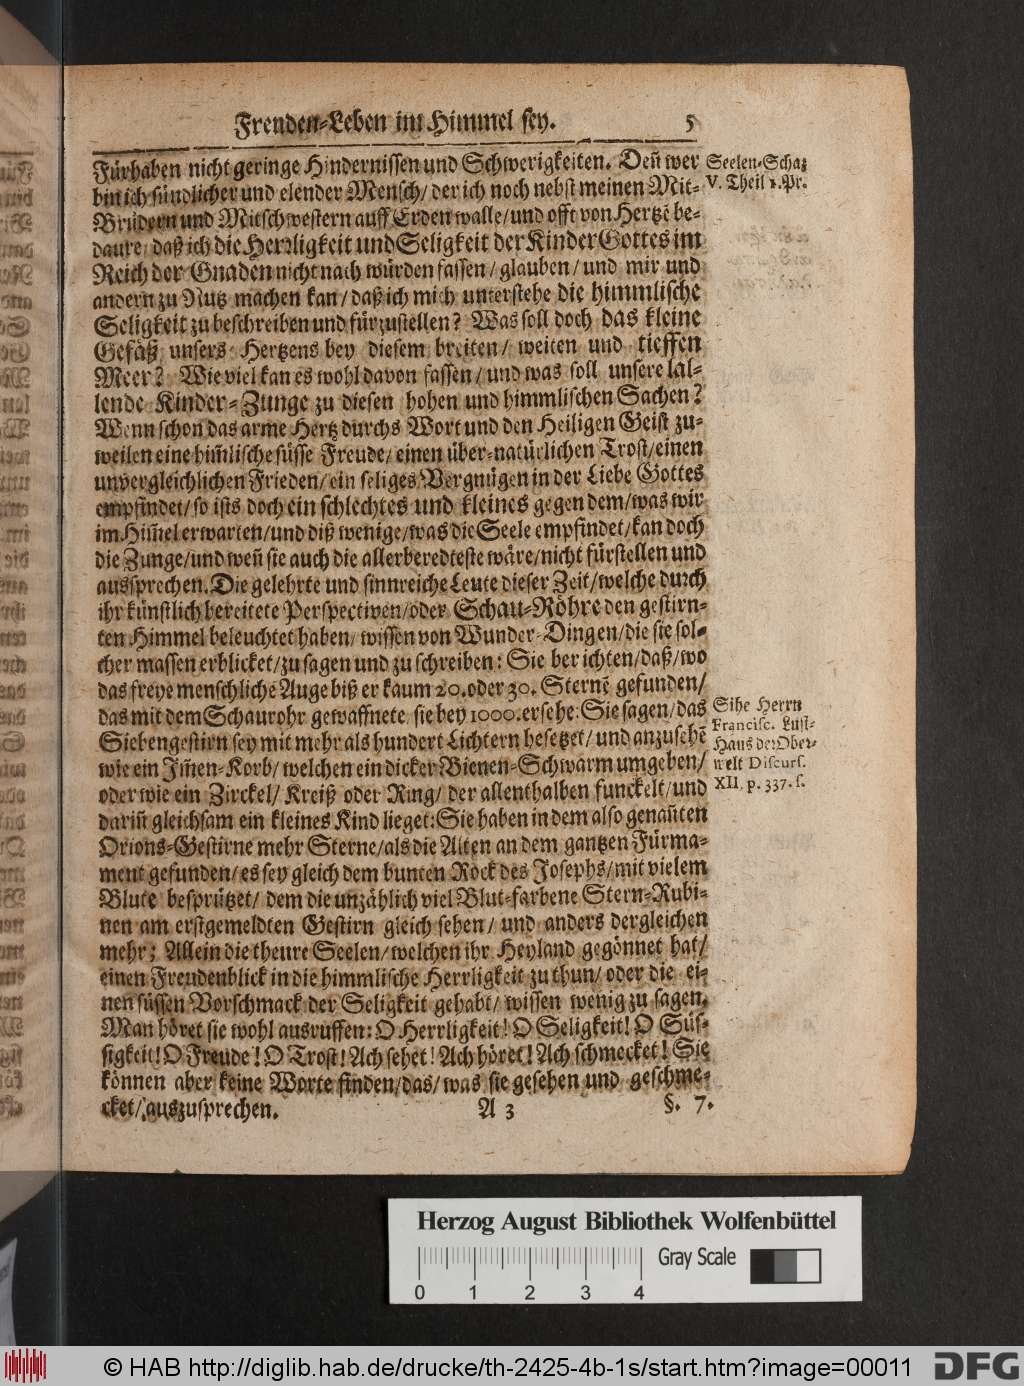 Freuden-Leben im Himmel sey. 5
Fürhaben nicht geringe Hindernissen und Schwerigkeiten. Deñ wer
bin ich sündlicher und elender Mensch/ der ich noch nebst meinen Mit-
Brüdern und Mitschwestern auff Erden walle/ und offt von Hertzē be-
daure/ daß ich die Herrligkeit und Seligkeit der Kinder Gottes im
Reich der Gnaden nicht nach würden fassen/ glauben/ und mir und
andern zu Nutz machen kan/ daß ich mich unterstehe die himmlische
Seligkeit zu beschreiben und fürzustellen? Was soll doch das kleine
Gefäß unsers Hertzens bey diesem breiten/ weiten und tieffen
Meer? Wie viel kan es wohl davon fassen/ und was soll unsere lal-
lende Kinder-Zunge zu diesen hohen und himmlischen Sachen?
Wenn schon das arme Hertz durchs Wort und den Heiligen Geist zu-
weilen eine him̃lische süsse Freude/ einen über-natürlichen Trost/ einen
unvergleichlichen Frieden/ ein seliges Vergnügen in der Liebe Gottes
empfindet/ so ists doch ein schlechtes und kleines gegen dem/ was wir
im Him̃el erwarten/ und diß wenige/ was die Seele empfindet/ kan doch
die Zunge/ und weñ sie auch die allerberedteste wäre/ nicht fürstellen und
aussprechen. Die gelehrte und sinnreiche Leute dieser Zeit/ welche durch
ihr künstlich bereitete Perspectiven/ oder Schau-Röhre den gestirn-
ten Himmel beleuchtet haben/ wissen von Wunder-Dingen/ die sie sol-
cher massen erblicket/ zu sagen und zu schreiben: Sie berichten/ daß/ wo
das freye menschliche Auge bißer kaum 20. oder 30. Sternē gefunden/
das mit dem Schaurohr gewaffnete sie bey 1000. ersehe: Sie sagen/ das
Siebengestirn sey mit mehr als hundert Lichtern besetzet/ und anzusehē
wie ein Im̃en-Korb/ welchen ein dicker Bienen-Schwarm umgeben/
oder wie ein Zirckel/ Kreiß oder Ring/ der allenthalben funckelt/ und
dariñ gleichsam ein kleines Kind lieget: Sie haben in dem also genañten
Orions-Gestirne mehr Sterne/ als die Alten an dem gantzen Fürma-
ment gefunden/ es sey gleich dem bunten Rock des Josephs/ mit vielem
Blute besprützet/ dem die unzählich viel Blut-farbene Stern-Rubi-
nen am erstgemeldten Gestirn gleich sehen/ und anders dergleichen
mehr; Allein die theure Seelen/ welchen ihr Heyland gegönnet hat/
einen Freudenblick in die himmlische Herrligkeit zu thun/ oder die ei-
nen süssen Vorschmack der Seligkeit gehabt/ wissen wenig zu sagen.
Man höret sie wohl ausruffen: O Herrligkeit! O Seligkeit! O Süs-
sigkeit! O Freude! O Trost! Ach sehet! Ach höret! Ach schmecket! Sie
können aber keine Worte finden/ das/ was sie gesehen und geschme-
cket/ auszusprechen.
A 3 §. 7.
Seelen-Schaz
V. Theil 1. Pr.
Sihe Herrn
Francisc. Lust-
Haus der Ober-
welt Discurs.
XII. p. 337. s.
Herzog August Bibliothek Wolfenbüttel
0 1 2 3 4
Gray Scale
© HAB http://diglib.hab.de/drucke/th-2425-4b-1s/start.htm?image=00011
DFG